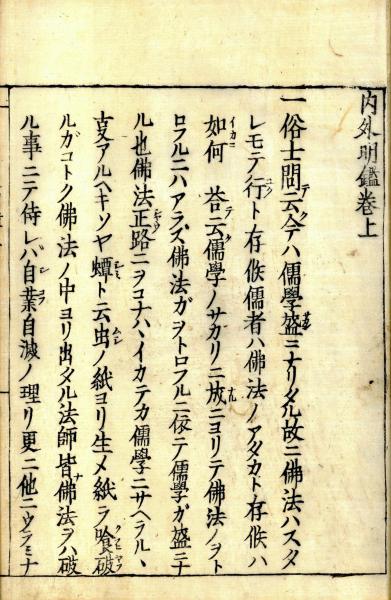 内外明鑑巻上
一俗士問テ云ク今ハ儒學盛ニナリタル故ニ佛法ハスタ
レモテ行ト存候儒者ハ佛法ノアタカト存候ハ
如何 荅テ云ク儒學ノサカリニ成ニヨリテ佛法ノヲト
ロフルニハアラズ佛法ガヲトロフルニ依テ儒學ガ盛ニナ
ル也佛法正路ニヲコナハヽイカテカ儒學ニサヘラルヽ
ヿアルヘキソヤ蟫ト云虫ノ紙ヨリ生メ紙ヲ喰破
ルガコトク佛法ノ中ヨリ出タル法師皆佛法ヲハ破
ル事ニテ侍レバ自業自滅ノ理リ更ニ他ニウラミナ